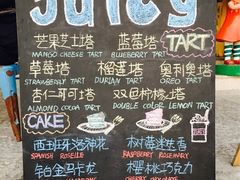 JUICY
芒果芝士塔 蓝莓塔 TART
MANGO CHEESE TART BLUEBERRY TART
草莓塔 榴莲塔 奥利奥塔
STRAWBERRY TART DURIAN TART OREO TART
杏仁可可塔 双色柠檬塔
ALMOND COCOA TART DOUBLE COLOR LEMON TART
CAKE
西班牙洛神花 树莓迷迭香
SPANISH ROSELLE RASPBERRY ROSEMARY
铂金马卡龙 樱桃巧克力
CHERRY